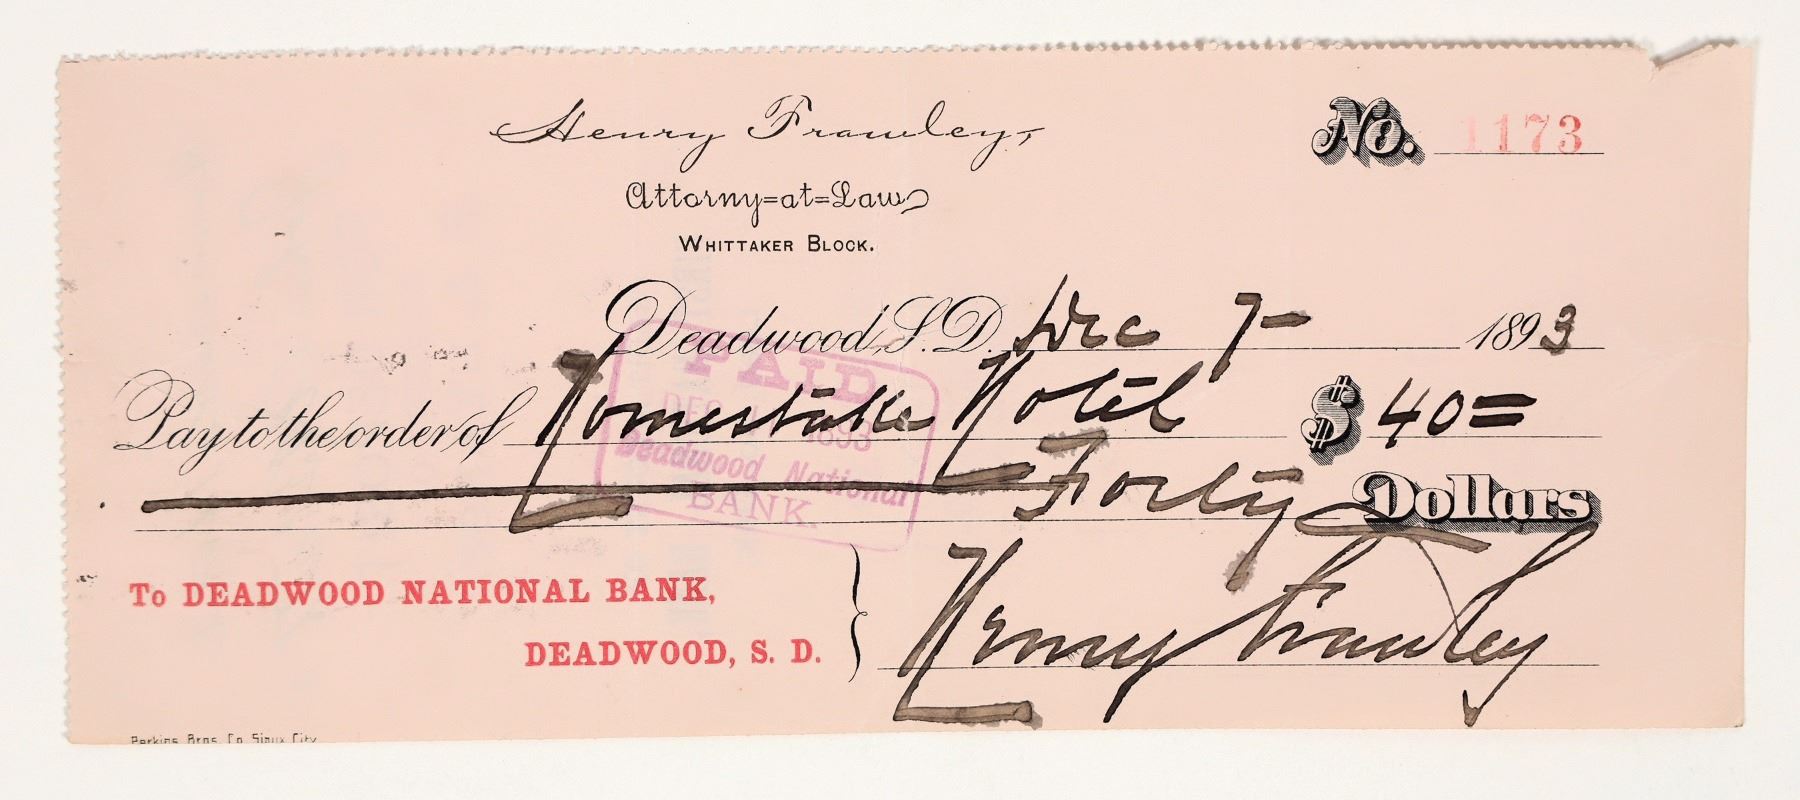 Henry Frawley,
No. 1173
Attorny=at=Law
WHITTAKER BLOCK.
Deadwood, S. D. Dec 7- 1893
Pay to the order of Homestake Hotel $ 40=
Forty Dollars
PAID
DEC 1893
Deadwood National
BANK.
To DEADWOOD NATIONAL BANK,
DEADWOOD, S. D.
Henry Frawley
Perkins Bros. Co. Sioux City